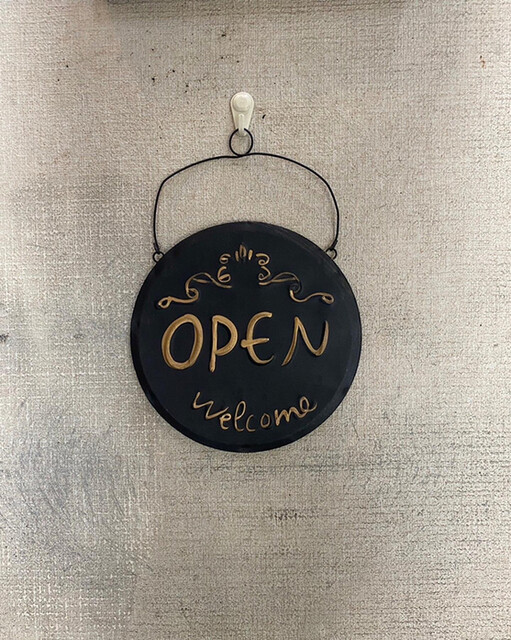 OPEN
Welcome